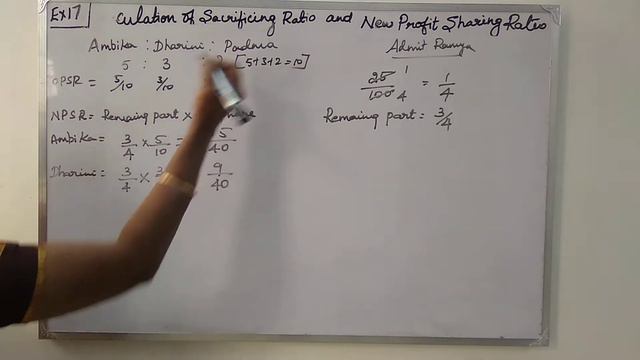 Ex17 culation of Sacrificing Ratio and New Profit Sharing Ratio
Ambika : Dharini : Padma
5 : 3 : 2 [5+3+2=10]
OPSR = 5/10 3/10
NPSR = Remaining part ×
Ambika = 3/4 × 5/10 = 5/40
Dharini = 3/4 × 3 9/40
Admit Ramya
25/100 4 1 = 1/4
Remaing part = 3/4